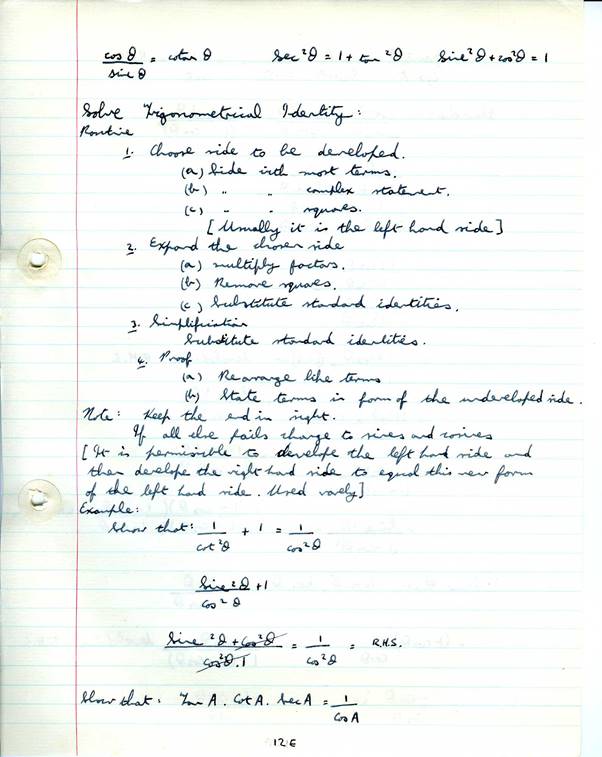 cosθ/sineθ = cotanθ sec²θ = 1 + tan²θ sine²θ + cos²θ = 1
Solve Trigonometrical Identity:
Routine
1. Choose side to be developed.
(a) Side with most terms.
(b) " " complex statement.
(c) " " squares.
[Usually it is the left hand side]
2. Expand the chosen side
(a) multiply factors.
(b) Remove squares.
(c) Substitute standard identities.
3. Simplification
Substitute standard identities.
4. Proof
(a) Rearrange like terms
(b) State terms in form of the undeveloped side.
Note: Keep the end in sight.
If all else fails change to sines and cosines
[It is permissible to develope the left hand side and
then develope the right hand side to equal this new form
of the left hand side. Used rarely]
Example:
Show that: 1/cot²θ + 1 = 1/cos²θ
Sine²θ/cos²θ + 1
Sine²θ + cos²θ/cos²θ.1 = 1/cos²θ = R.H.S.
Show that: Tan A. Cot A. Sec A = 1/cos A
12.6